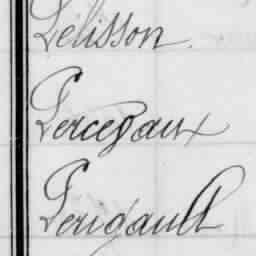 Pelisson.
Percevaux
Perigault